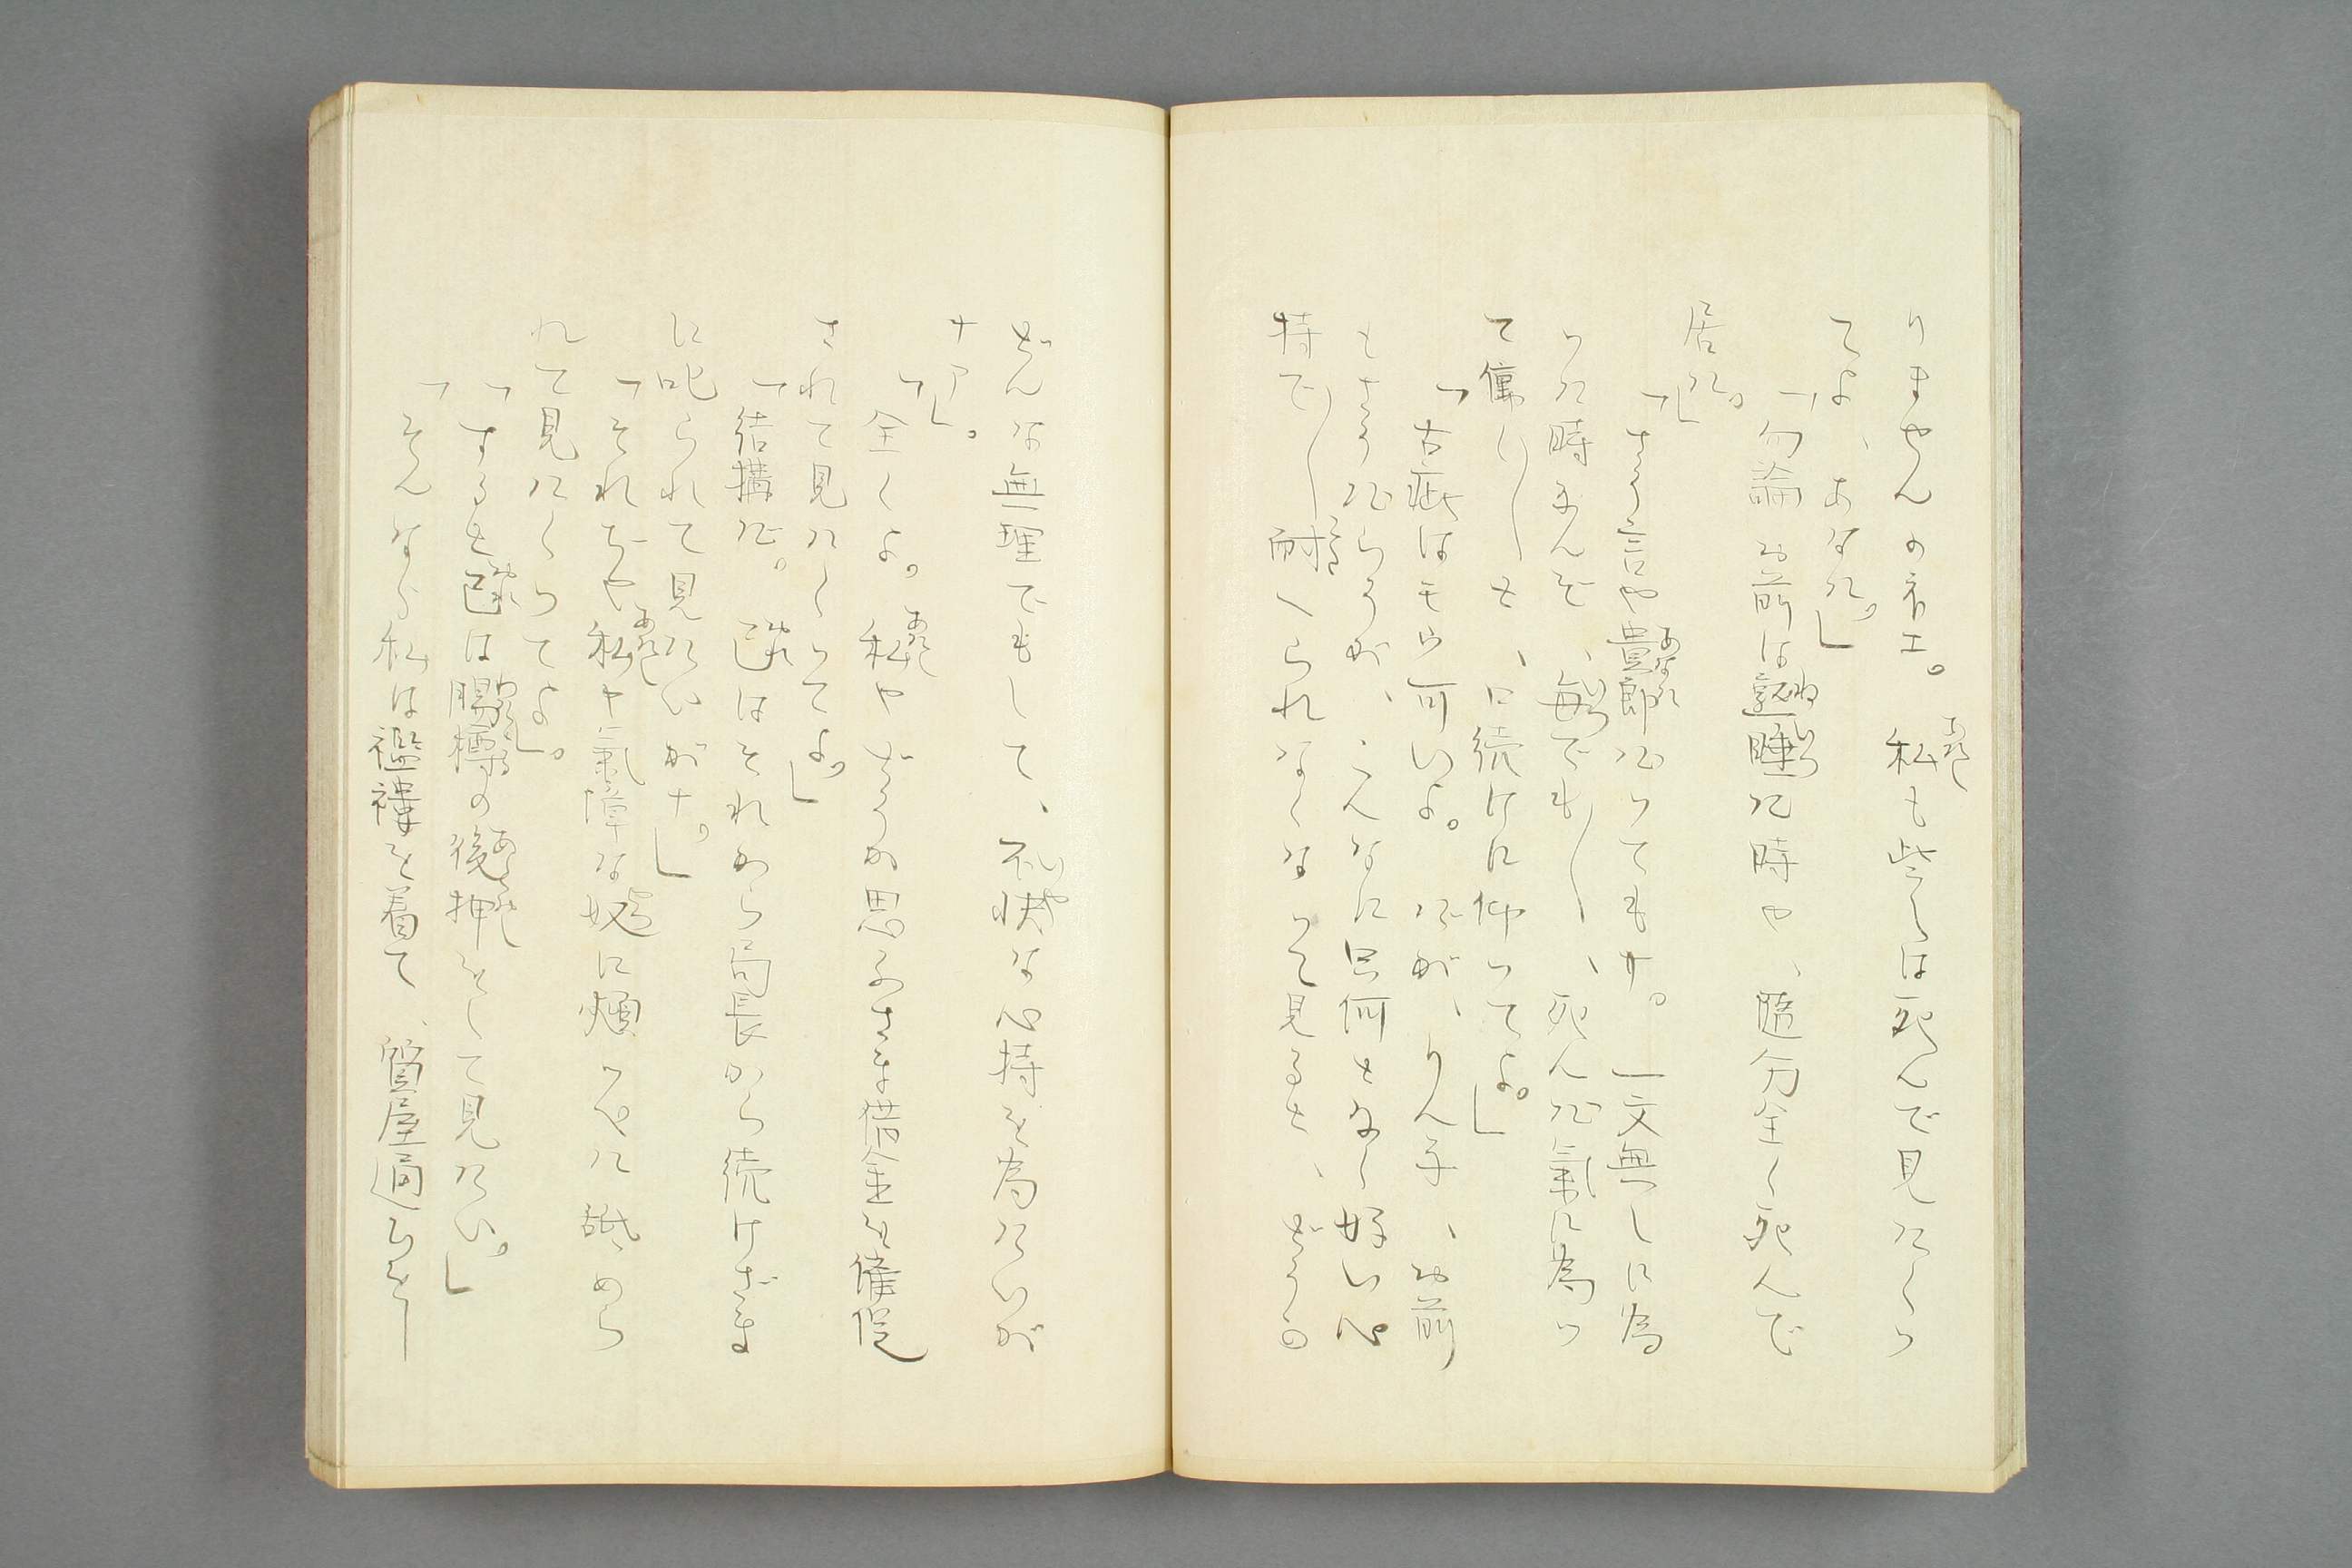 りませんのネエ。私も些しは死んで見たくつ
てよ、あなた。」
「勿論お前は熟睡た時や、隨分全く死んで
居た。」
「さう言や貴郎だつてもサ。一文無しに為
つた時なんぞ、毎でも、死んだ氣に為つ
て働くと、口続けに仰つてよ。」
「古疵はモウ可いよ。だが、りん子、お前
もさうだらうが、こんなに只何となく好い心
持で、耐へられなくなつて見ると、どうも
どんな無理でもして、不快な心持を為たいが
ナア」。
「全くよ。私やどうか思ふさま借金を催促
されて見たくつてよ。」
「結構だ。己はそれから局長から続けざま
に叱られて見たいがナ。」
「それぢや私や氣障な奴に頬ツぺた舐めら
れて見たくつてよ。」
「すると己は腸樽の後押をして見たい。」
「そんなら私は襤褸を着て、質屋通ひを